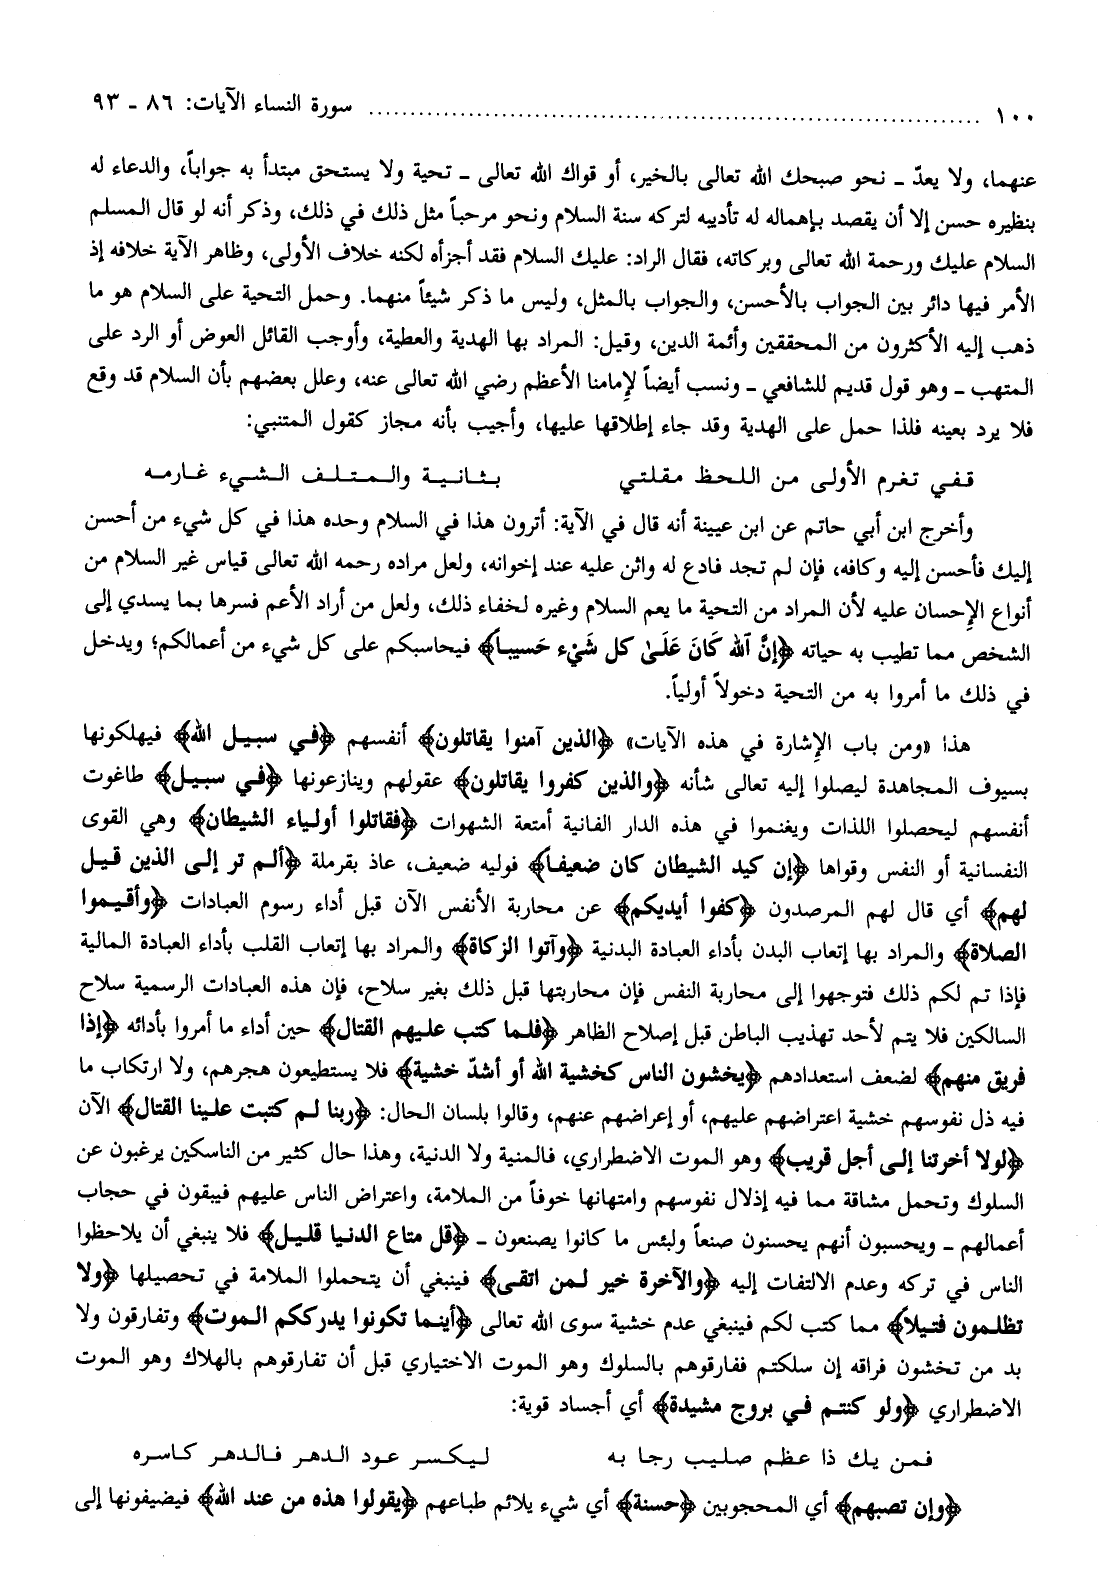 ١٠٠ .......................................................... سورة النساء الآيات: ٨٦ ـ ٩٣
عنهما، ولا يعدّ ـ نحو صبحك الله تعالى بالخير، أو قواك الله تعالى ـ تحية ولا يستحق مبتدأ به جواباً، والدعاء له
بنظيره حسن إلا أن يقصد بإهماله له تأديبه لتركه سنة السلام ونحو مرحباً مثل ذلك في ذلك، وذكر أنه لو قال المسلم
السلام عليك ورحمة الله تعالى وبركاته، فقال الراد: عليك السلام فقد أجزأه لكنه خلاف الأولى، وظاهر الآية خلافه إذ
الأمر فيها دائر بين الجواب بالأحسن، والجواب بالمثل، وليس ما ذكر شيئاً منهما. وحمل التحية على السلام هو ما
ذهب إليه الأكثرون من المحققين وأئمة الدين، وقيل: المراد بها الهدية والعطية، وأوجب القائل العوض أو الرد على
المتهب ـ وهو قول قديم للشافعي ـ ونسب أيضاً لإمامنا الأعظم رضي الله تعالى عنه، وعلل بعضهم بأن السلام قد وقع
فلا يرد بعينه فلذا حمل على الهدية وقد جاء إطلاقها عليها، وأجيب بأنه مجاز كقول المتنبي:
قفي تغرم الأولى من اللحظ مقلتي بثانية والمتلف الشيء غارمه
وأخرج ابن أبي حاتم عن ابن عيينة أنه قال في الآية: أترون هذا في السلام وحده هذا في كل شيء من أحسن
إليك فأحسن إليه وكافه، فإن لم تجد فادع له واثن عليه عند إخوانه، ولعل مراده رحمه الله تعالى قياس غير السلام من
أنواع الإحسان عليه لأن المراد من التحية ما يعم السلام وغيره لخفاء ذلك، ولعل من أراد الأعم فسرها بما يسدي إلى
الشخص مما تطيب به حياته ﴿إنَّ آلله كَانَ عَلَىٰ كل شَيْء حَسيباً﴾ فيحاسبكم على كل شيء من أعمالكم؛ ويدخل
في ذلك ما أمروا به من التحية دخولاً أولياً.
هذا «ومن باب الإشارة في هذه الآيات» ﴿الذين آمنوا يقاتلون﴾ أنفسهم ﴿في سبيل الله﴾ فيهلكونها
بسيوف المجاهدة ليصلوا إليه تعالى شأنه ﴿والذين كفروا يقاتلون﴾ عقولهم وينازعونها ﴿في سبيل﴾ طاغوت
أنفسهم ليحصلوا اللذات ويغنموا في هذه الدار الفانية أمتعة الشهوات ﴿فقاتلوا أولياء الشيطان﴾ وهي القوى
النفسانية أو النفس وقواها ﴿إن كيد الشيطان كان ضعيفاً﴾ فوليه ضعيف، عاذ بقرملة ﴿ألم تر إلى الذين قيل
لهم﴾ أي قال لهم المرصدون ﴿كفوا أيديكم﴾ عن محاربة الأنفس الآن قبل أداء رسوم العبادات ﴿وأقيموا
الصلاة﴾ والمراد بها إتعاب البدن بأداء العبادة البدنية ﴿وآتوا الزكاة﴾ والمراد بها إتعاب القلب بأداء العبادة المالية
فإذا تم لكم ذلك فتوجهوا إلى محاربة النفس فإن محاربتها قبل ذلك بغير سلاح، فإن هذه العبادات الرسمية سلاح
السالكين فلا يتم لأحد تهذيب الباطن قبل إصلاح الظاهر ﴿فلما كتب عليهم القتال﴾ حين أداء ما أمروا بأدائه ﴿إذا
فريق منهم﴾ لضعف استعدادهم ﴿يخشون الناس كخشية الله أو أشدّ خشية﴾ فلا يستطيعون هجرهم، ولا ارتكاب ما
فيه ذل نفوسهم خشية اعتراضهم عليهم، أو إعراضهم عنهم، وقالوا بلسان الحال: ﴿ربنا لم كتبت علينا القتال﴾ الآن
﴿لولا أخرتنا إلى أجل قريب﴾ وهو الموت الاضطراري، فالمنية ولا الدنية، وهذا حال كثير من الناسكين يرغبون عن
السلوك وتحمل مشاقة مما فيه إذلال نفوسهم وامتهانها خوفاً من الملامة، واعتراض الناس عليهم فيبقون في حجاب
أعمالهم ـ ويحسبون أنهم يحسنون صنعاً ولبئس ما كانوا يصنعون ـ ﴿قل متاع الدنيا قليل﴾ فلا ينبغي أن يلاحظوا
الناس في تركه وعدم الالتفات إليه ﴿والآخرة خير لمن اتقى﴾ فينبغي أن يتحملوا الملامة في تحصيلها ﴿ولا
تظلمون فتيلا﴾ مما كتب لكم فينبغي عدم خشية سوى الله تعالى ﴿أينما تكونوا يدرككم الموت﴾ وتفارقون ولا
بد من تخشون فراقه إن سلكتم ففارقوهم بالسلوك وهو الموت الاختياري قبل أن تفارقوهم بالهلاك وهو الموت
الاضطراري ﴿ولو كنتم في بروج مشيدة﴾ أي أجساد قوية:
فمن يك ذا عظم صليب رجا به ليكسر عود الدهر فالدهر كاسره
﴿وإن تصبهم﴾ أي المحجوبين ﴿حسنة﴾ أي شيء يلائم طباعهم ﴿يقولوا هذه من عند الله﴾ فيضيفونها إلى